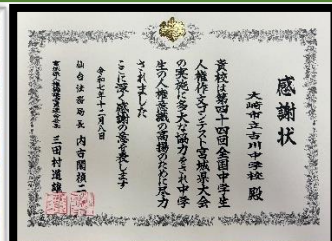 感謝状
大崎市立古川中学校 殿
貴校は第四十四回全国中学生
人権作文コンテスト宮城県大会
の実施に多大な協力をされ中学
生の人権意識の高揚のために尽力
されました
ここに深く感謝の意を表します
令和七年十二月八日
仙台法務局長
三田村道雄